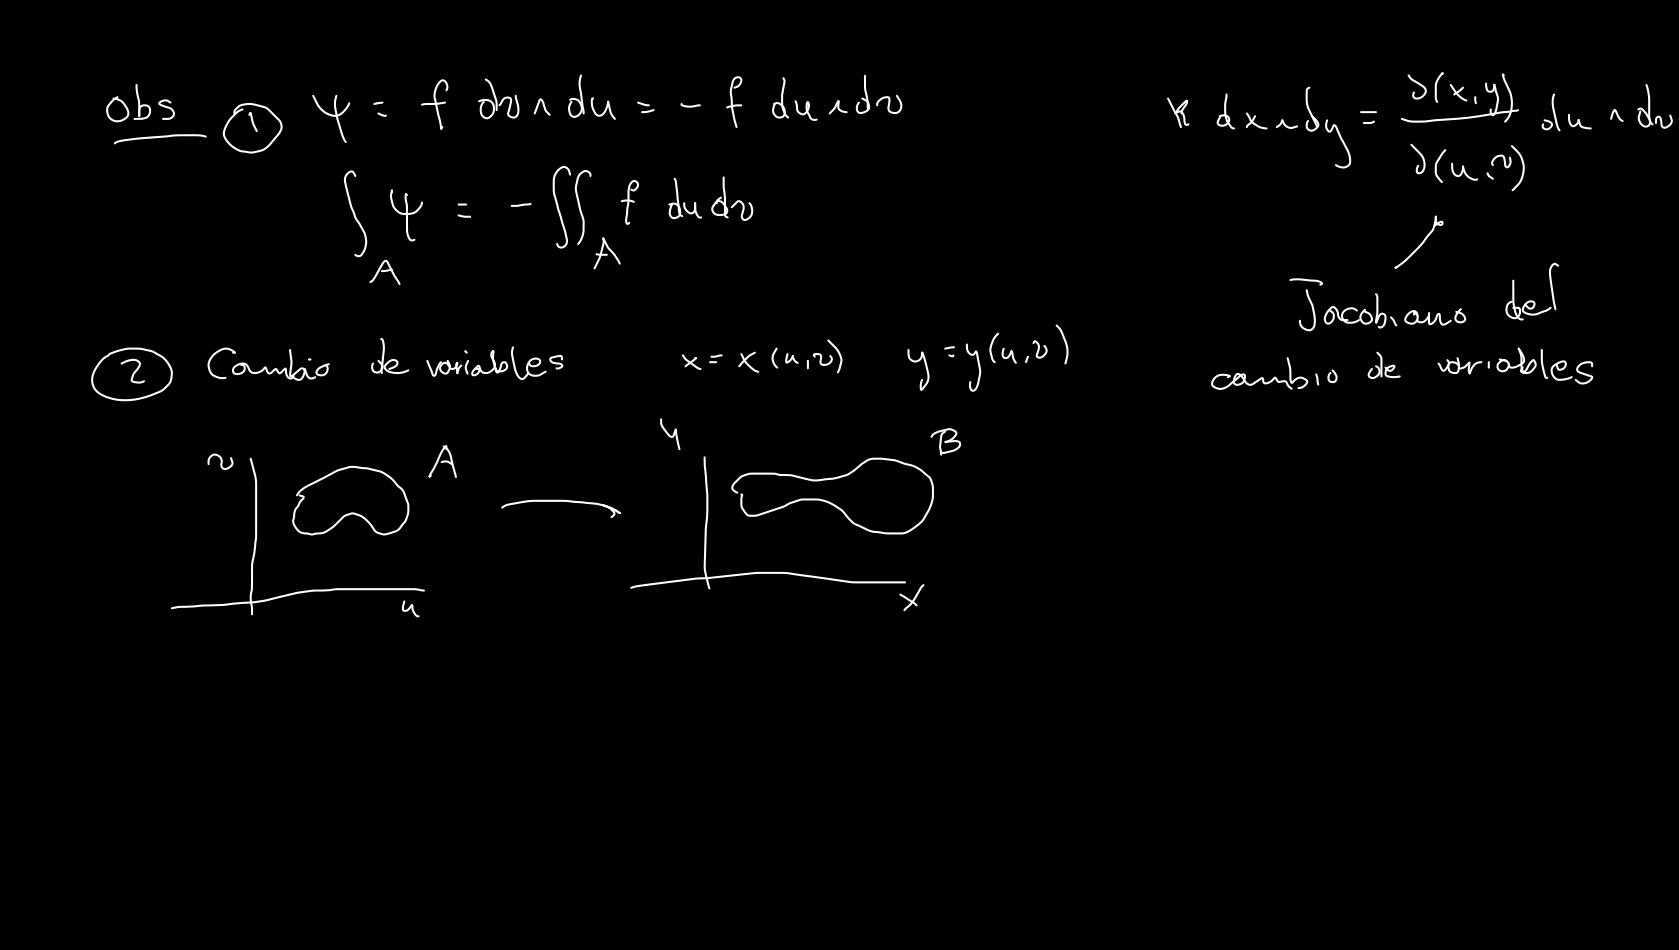 Obs ① ψ = f dv ∧ du = - f du ∧ dv
∫_A ψ = - ∬_A f du dv
② Cambio de variables x = x(u,v) y = y(u,v)
v A
u
y B
x
dx ∧ dy = ∂(x,y)/∂(u,v) du ∧ dv
Jacobiano del
cambio de variables